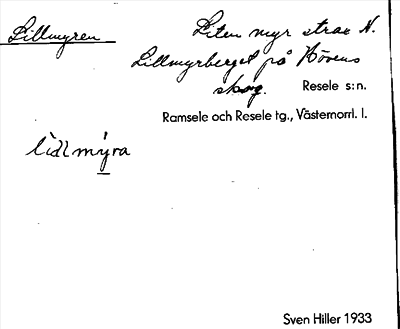 Lillmyren
Liten myr strax N.
Lillmyrberget på Hövens
skog.
Resele s:n.
Ramsele och Resele tg., Västernorrl. l.
lìllmýra
Sven Hiller 1933